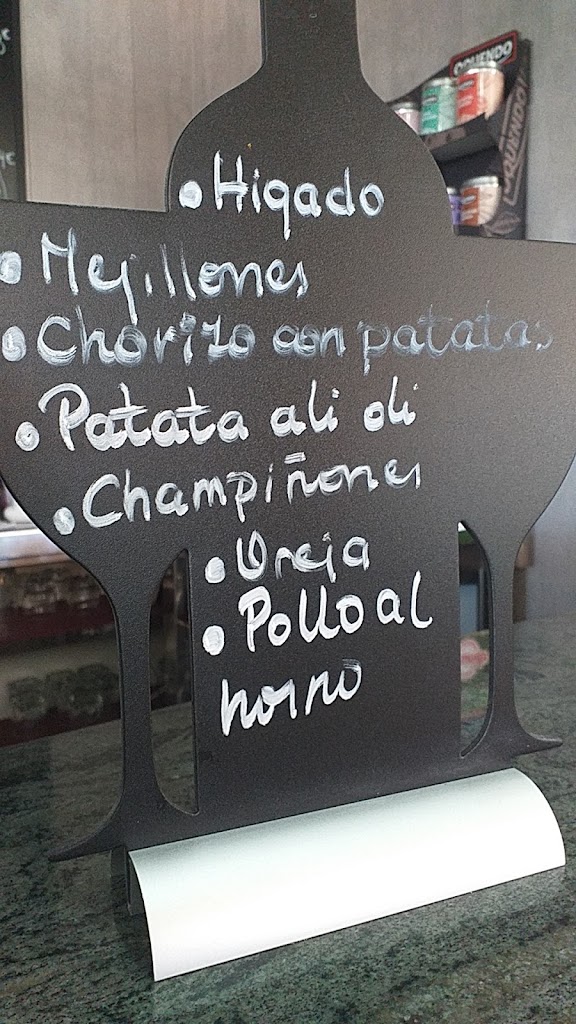 OQUENDO
• Higado
• Mejillones
• Chorizo con patatas
• Patata ali oli
• Champiñones
• Oreja
• Pollo al
horno